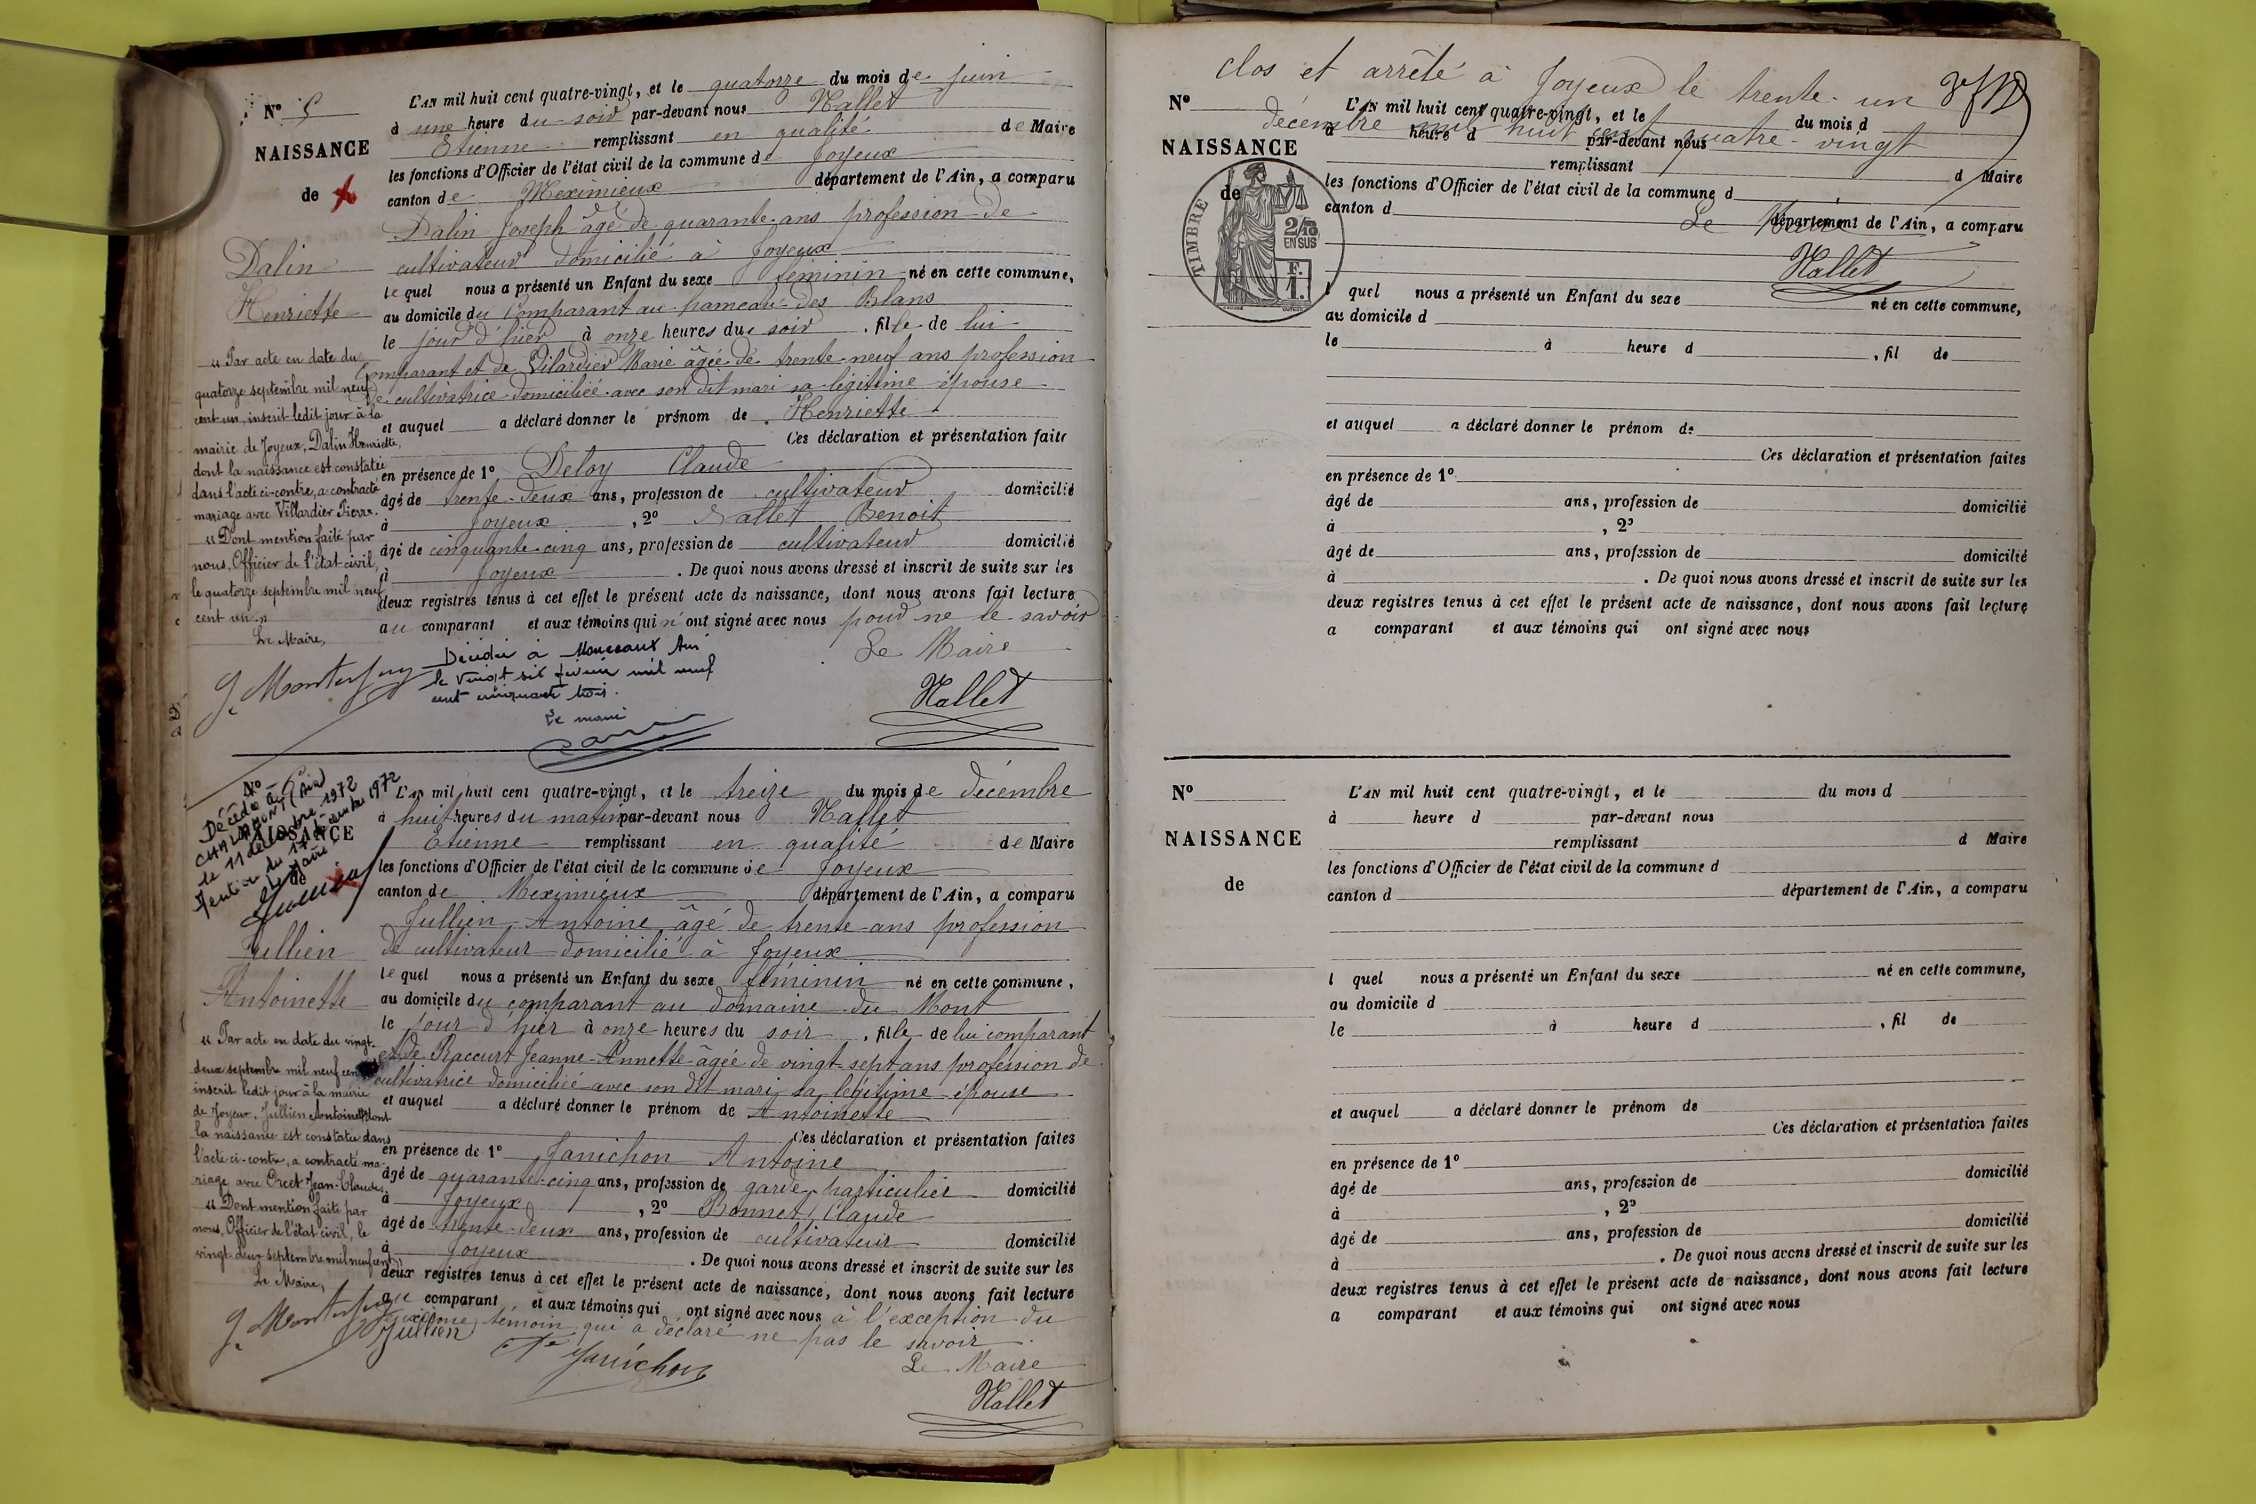 N° 5
NAISSANCE
de
Dalin
Henriette
L'AN mil huit cent quatre-vingt, et le quatorze du mois de juin
à une heure du soir par-devant nous Nallet
Etienne remplissant en qualité de Maire
les fonctions d'Officier de l'état civil de la commune de Joyeux
canton de Meximieux département de l'Ain, a comparu
Dalin Joseph âgé de quarante ans profession de
cultivateur domicilié à Joyeux
lequel nous a présenté un Enfant du sexe féminin né en cette commune,
au domicile du Comparant au hameau des Blans
le jour d'hier à onze heures du soir, fille de lui
Comparant et de Vilardier Marie âgée de trente-neuf ans profession
de cultivatrice domiciliée avec son dit mari sa légitime épouse
et auquel a déclaré donner le prénom de Henriette
Ces déclaration et présentation faites
en présence de 1° Deloy Claude
âgé de trente-deux ans, profession de cultivateur domicilié
à Joyeux, 2° Nallet Benoit
âgé de cinquante-cinq ans, profession de cultivateur domicilié
à Joyeux. De quoi nous avons dressé et inscrit de suite sur les
deux registres tenus à cet effet le présent acte de naissance, dont nous avons fait lecture
au comparant et aux témoins qui n'ont signé avec nous pour ne le savoir
Le Maire
Nallet
« Par acte en date du
quatorze septembre mil neuf
cent un, inscrit ledit jour à la
mairie de Joyeux, Dalin Henriette,
dont la naissance est constatée
dans l'acte ci-contre, a contracté
mariage avec Villardier Pierre.
« Dont mention faite par
nous, Officier de l'état-civil,
le quatorze septembre mil neuf
cent un »
Le Maire,
Décédée à Ain
le vingt six mil neuf
cent cinquante trois.
Le maire
N° 6
NAISSANCE
de
Décédée à
CHALAMONT (Ain)
le 11 décembre 1972
Mention du 17 décembre 1972
Le Maire
Jullien
Antoinette
L'AN mil huit cent quatre-vingt, et le treize du mois de décembre
à huit heures du matin par-devant nous Nallet
Etienne remplissant en qualité de Maire
les fonctions d'Officier de l'état civil de la commune de Joyeux
canton de Meximieux département de l'Ain, a comparu
Jullien Antoine âgé de trente ans profession
de cultivateur domicilié à Joyeux
lequel nous a présenté un Enfant du sexe féminin né en cette commune,
au domicile du comparant au domaine du Mont
le jour d'hier à onze heures du soir, fille de lui comparant
et de Raccurt Jeanne-Annette âgée de vingt-sept ans profession de
cultivatrice domiciliée avec son dit mari sa légitime épouse
et auquel a déclaré donner le prénom de Antoinette
Ces déclaration et présentation faites
en présence de 1° Janichon Antoine
âgé de quarante-cinq ans, profession de garde particulier domicilié
à Joyeux, 2° Bonnet Claude
âgé de trente-deux ans, profession de cultivateur domicilié
à Joyeux. De quoi nous avons dressé et inscrit de suite sur les
deux registres tenus à cet effet le présent acte de naissance, dont nous avons fait lecture
au comparant et aux témoins qui ont signé avec nous à l'exception du
deuxième témoin qui a déclaré ne pas le savoir
Jullien
Janichon
Le Maire
Nallet
« Par acte en date du vingt-
deux septembre mil neuf cent
inscrit ledit jour à la mairie
de Joyeux, Jullien Antoinette dont
la naissance est constatée dans
l'acte ci-contre, a contracté ma-
riage avec Crcet Jean-Claude
« Dont mention faite par
nous, Officier de l'état-civil, le
vingt-deux septembre mil neuf cent
Le Maire,
clos et arrêté à Joyeux le trente-un
décembre mil huit cent quatre-vingt
Le Maire
Nallet
TIMBRE
2/10
EN SUS
F.
1.
N°
NAISSANCE
de
L'AN mil huit cent quatre-vingt, et le du mois d
à heure d par-devant nous
remplissant d Maire
les fonctions d'Officier de l'état civil de la commune d
canton d département de l'Ain, a comparu
l quel nous a présenté un Enfant du sexe né en cette commune,
au domicile d
le à heure d , fil de
et auquel a déclaré donner le prénom de
Ces déclaration et présentation faites
en présence de 1°
âgé de ans, profession de domicilié
à , 2°
âgé de ans, profession de domicilié
à . De quoi nous avons dressé et inscrit de suite sur les
deux registres tenus à cet effet le présent acte de naissance, dont nous avons fait lecture
a comparant et aux témoins qui ont signé avec nous
N°
NAISSANCE
de
L'AN mil huit cent quatre-vingt, et le du mois d
à heure d par-devant nous
remplissant d Maire
les fonctions d'Officier de l'état civil de la commune d
canton d département de l'Ain, a comparu
l quel nous a présenté un Enfant du sexe né en cette commune,
au domicile d
le à heure d , fil de
et auquel a déclaré donner le prénom de
Ces déclaration et présentation faites
en présence de 1°
âgé de ans, profession de domicilié
à , 2°
âgé de ans, profession de domicilié
à . De quoi nous avons dressé et inscrit de suite sur les
deux registres tenus à cet effet le présent acte de naissance, dont nous avons fait lecture
a comparant et aux témoins qui ont signé avec nous